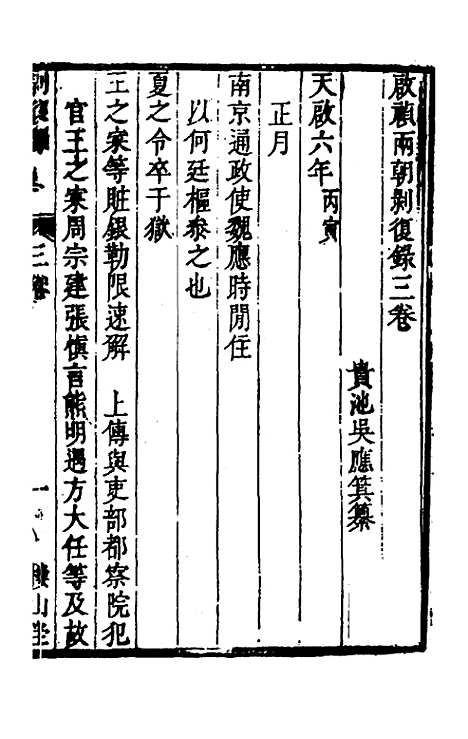 啟禎兩朝剝復錄三卷
貴池吳應箕纂
天啟六年丙寅
正月
南京通政使魏應時閒住
以何廷樞叅之也
夏之令卒于獄
王之寀等賍銀勒限速解　上傳與吏部都察院犯
官王之寀周宗建張慎言熊明遇方大任等及故
三卷
一
樓山堂